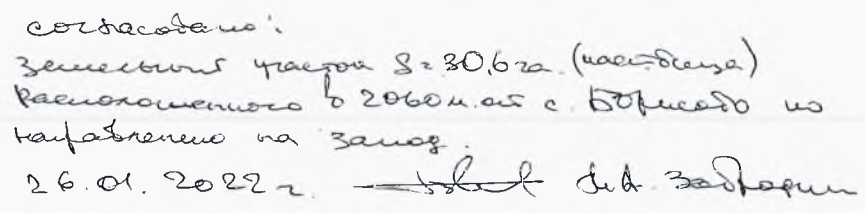 согласовано:
Земельный участок S=30,6 га (пастбища)
Расположенного в 2060 м. от с. Борисово по
направлению на запад.
26.01.2022 г.